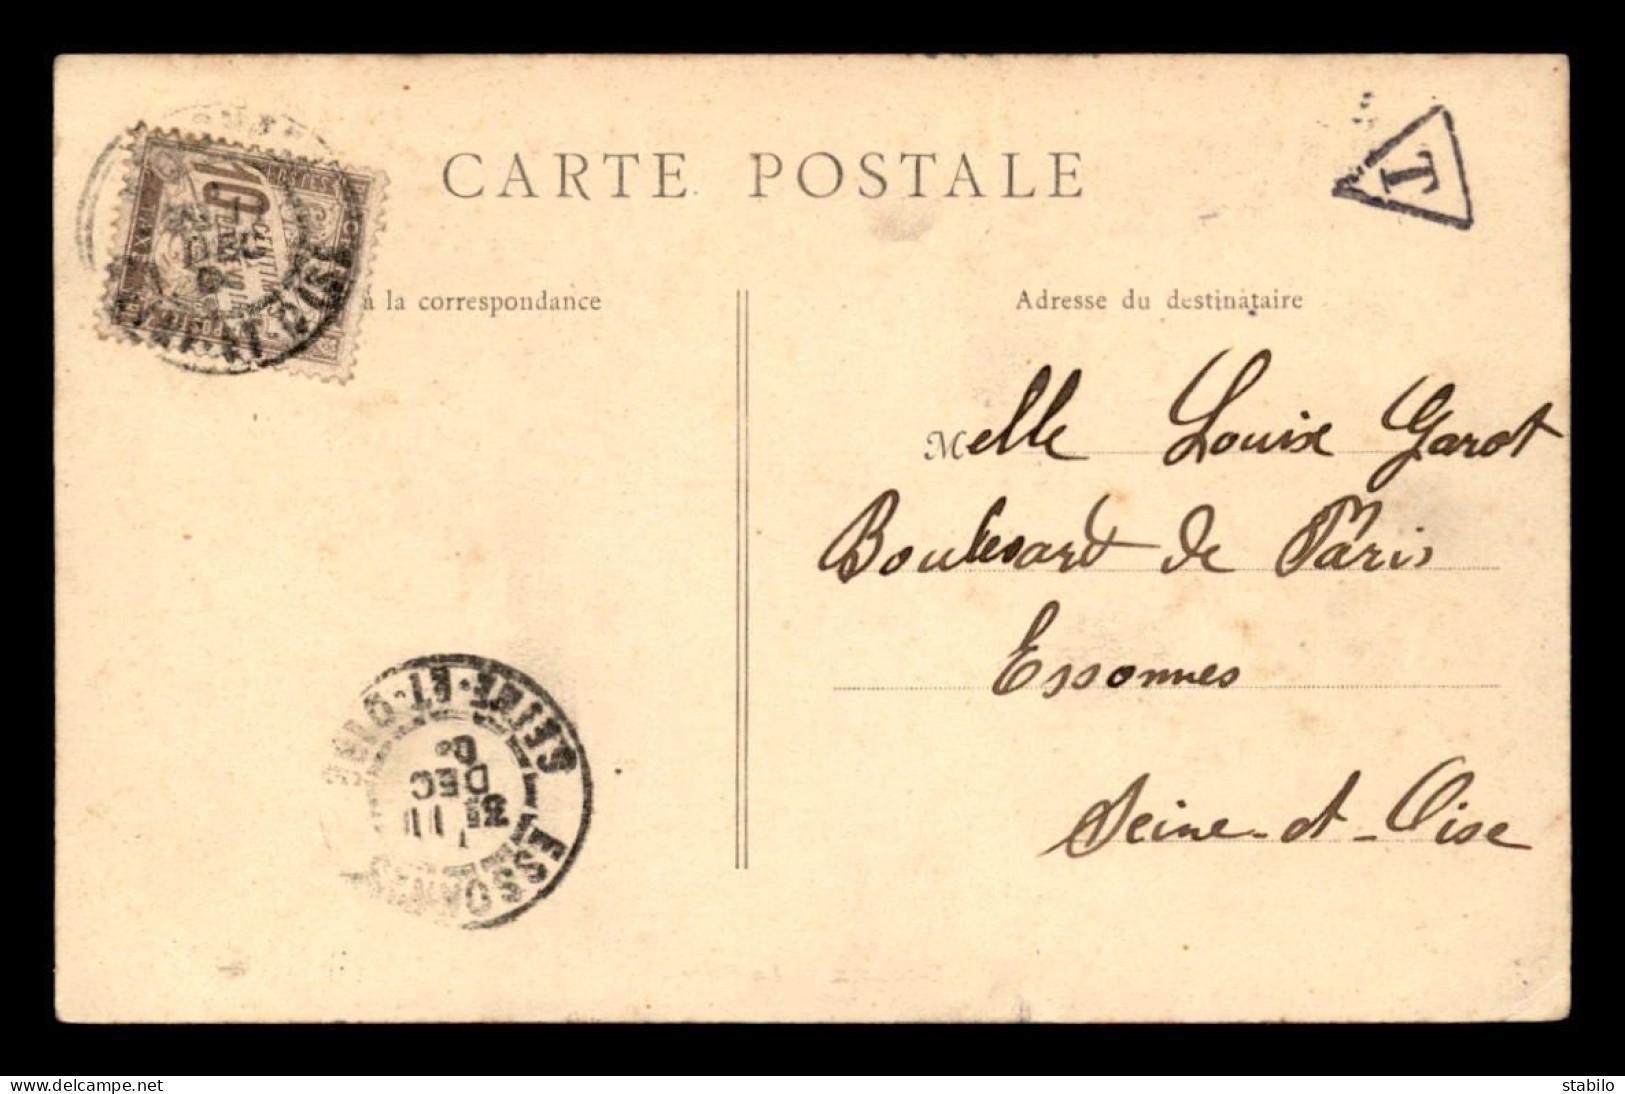 CARTE POSTALE
T
10
CENTIMES
à la correspondance
Adresse du destinataire
Melle Louise Garot
Boulevard de Paris
Essonnes
Seine-et-Oise
SEINE-ET-OISE
DEC
ESSONNES
www.delcampe.net
stabilo